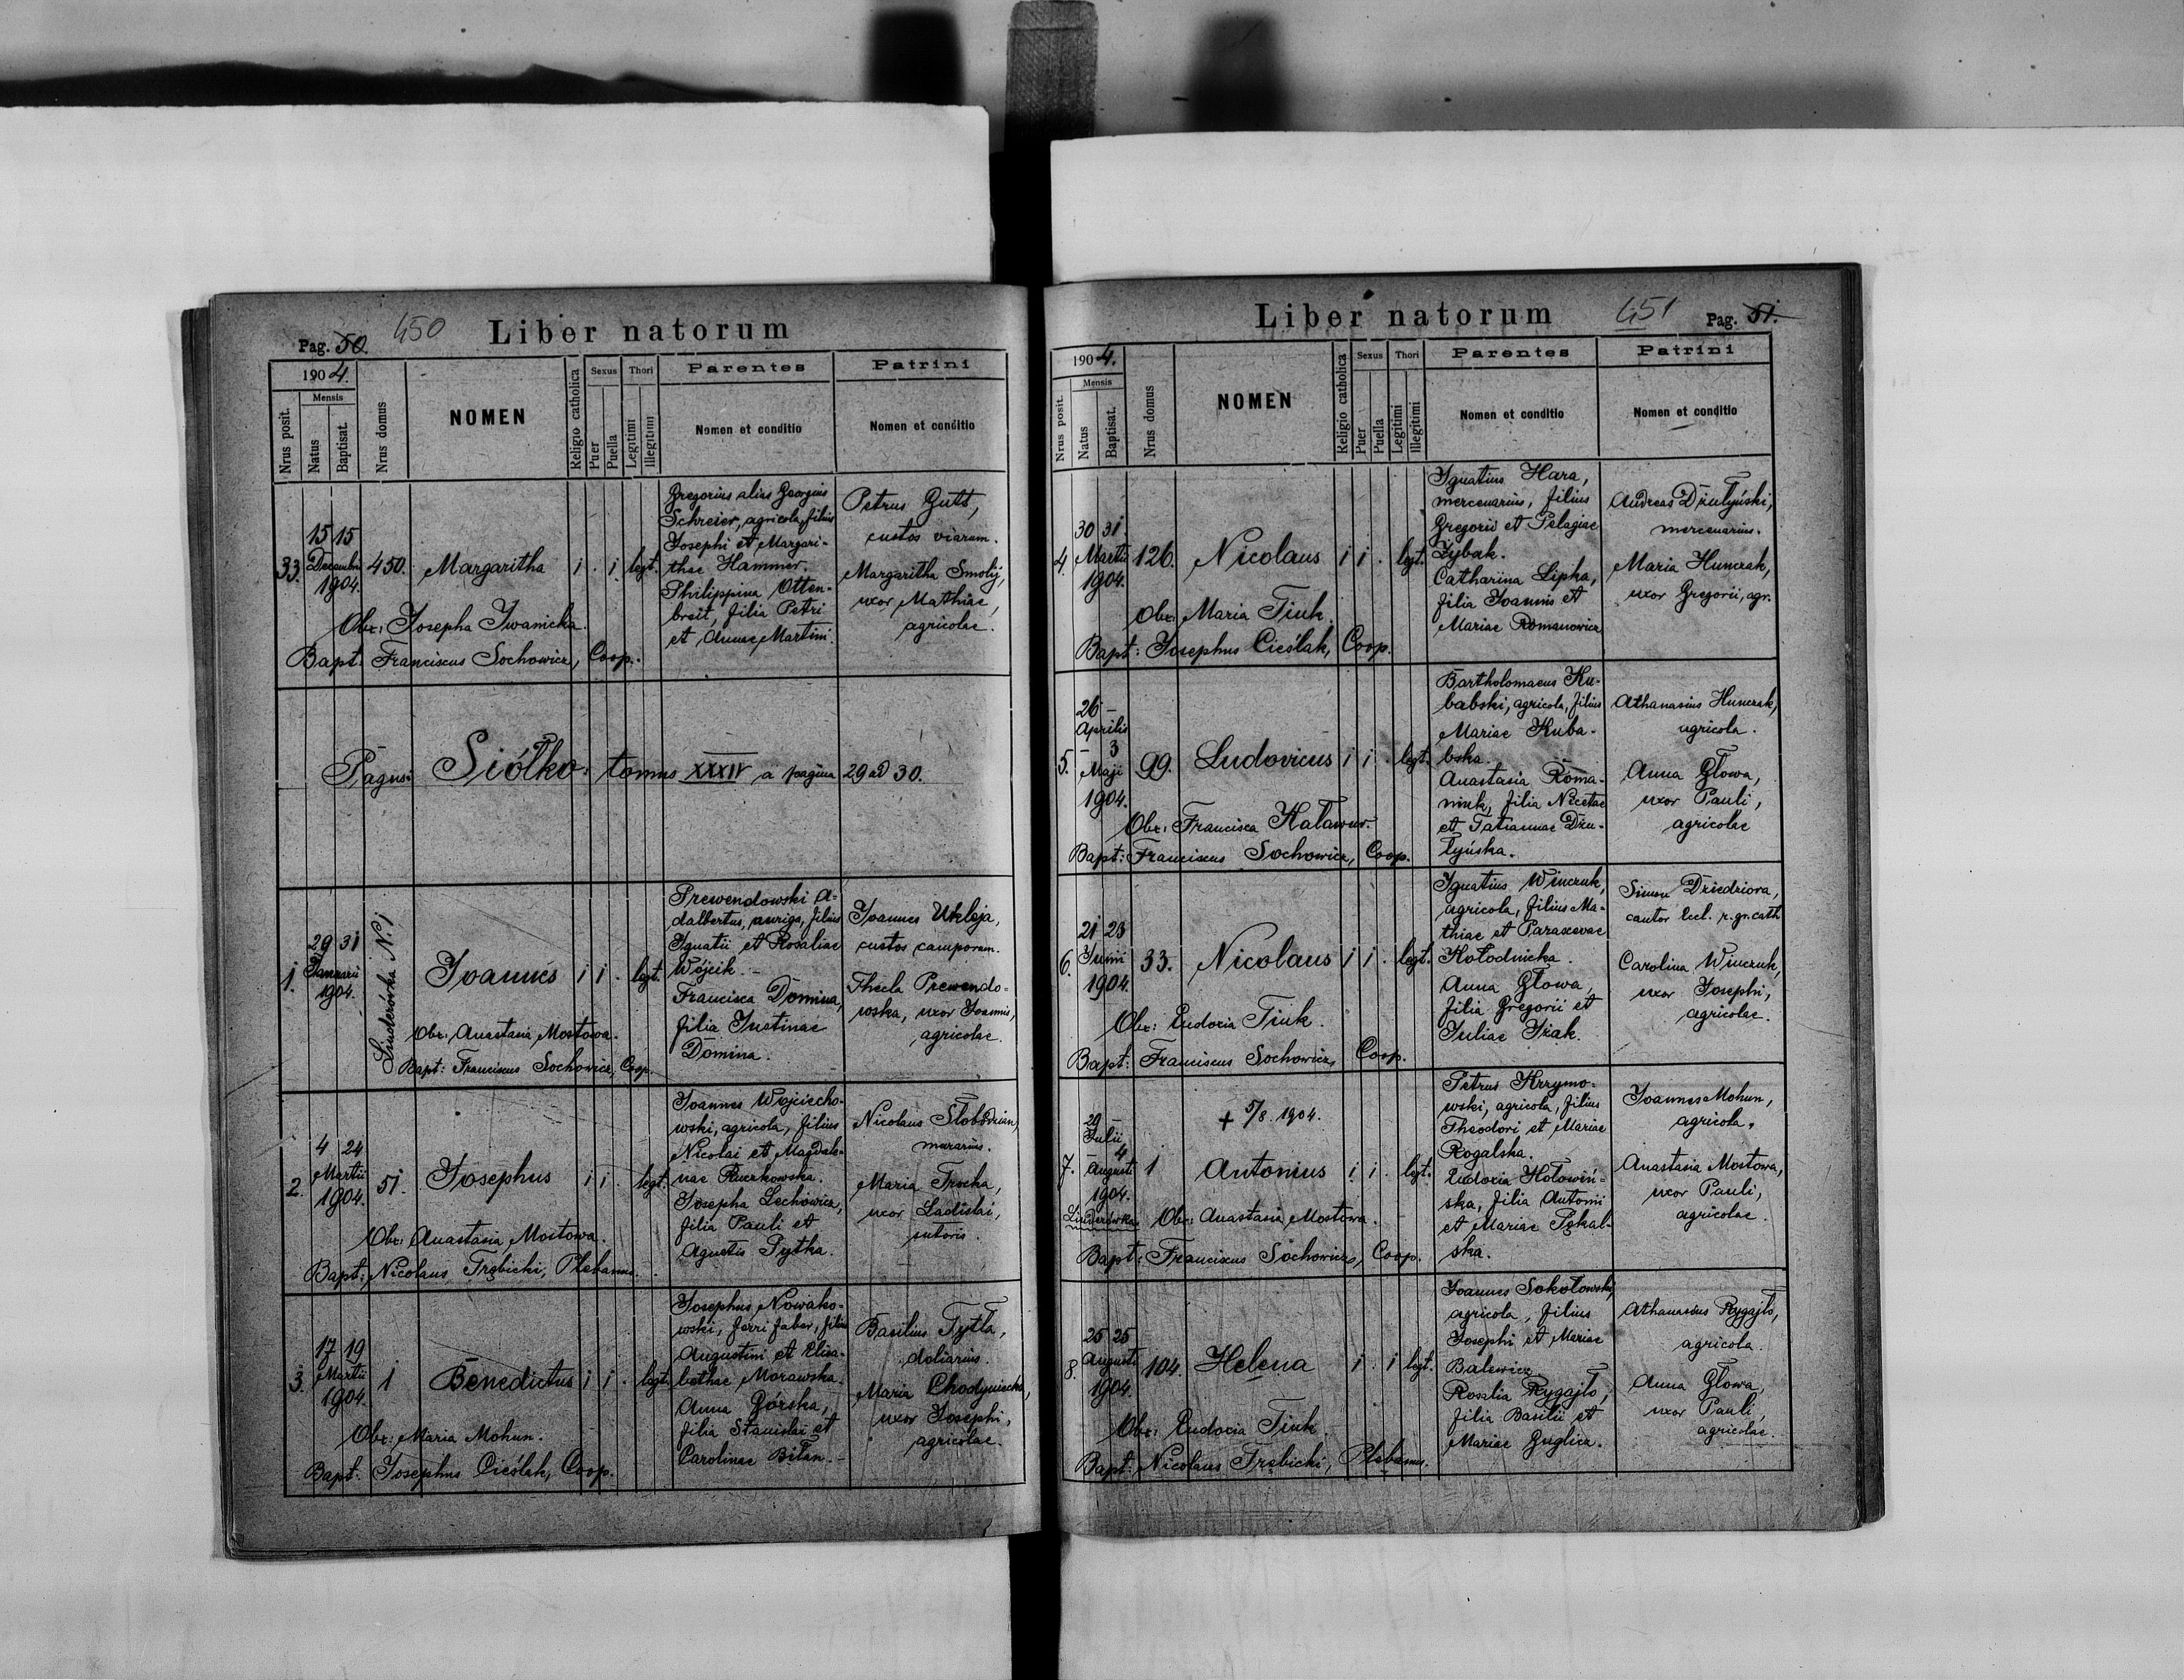 Pag. 50. 450 Liber natorum
1904.
Nrus posit.
Mensis
Natus
Baptisat.
Nrus domus
NOMEN
Religio catholica
Sexus
Puer
Puella
Thori
Legitimi
Illegitimi
Parentes
Nomen et conditio
Patrini
Nomen et conditio
33.
15 15
Decembris
1904.
450.
Margaritha
i . i legt.
Gregorius alias Georgius
Schreier, agricola, filius
Josephi et Margari-
thae Hammer.
Philippina Otten-
breit, filia Petri
et Annae Martini.
Petrus Gutt,
custos viarum.
Margaritha Smolij,
uxor Mathiae,
agricolae.
Obx: Josepha Iwanicka.
Bapt: Franciscus Sochowicz, Coop.
Pagus: Siółko: tomus XXXIV a pagina 29 ad 30.
1.
29 31
Januarii
1904.
Linderówka N. 1
Joannes
i i . legt.
Prewendowski A-
dalbertus, auriga, filius
Ignatii et Rosaliae
Wójcik. -
Francisca Domina,
filia Justinae
Domina.
Joannes Ukleja,
custos camporum.
Thecla Prewendo-
wska, uxor Joannis,
agricolae.
Obx: Anastasia Mostowa.
Bapt: Franciscus Sochowicz, Coop.
2.
4 24
Martii
1904.
51.
Josephus
i i . legt.
Joannes Wojciecho-
wski, agricola, filius
Nicolai et Magdale-
nae Ruczkowska.
Josepha Lechowicz,
filia Pauli et
Agnetis Pytka.
Nicolaus Słobodzian,
murarius.
Maria Trocka,
uxor Ladislai,
sutoris.
Obx: Anastasia Mostowa.
Bapt: Nicolaus Trębicki, Plebanus.
3.
17 19
Martii
1904.
1
Benedictus
i i . legt.
Josephus Nowako-
wski, ferri faber, filius
Augustini et Elisa-
bethae Morawska.
Anna Górska,
filia Stanislai et
Carolinae Bilan. -
Basilius Tytła,
doliarius.
Maria Chodyniecka,
uxor Josephi,
agricolae.
Obx: Maria Mohun.
Bapt: Josephus Cieślak, Coop.
Liber natorum 451 Pag. 51.
1904.
Nrus posit.
Mensis
Natus
Baptisat.
Nrus domus
NOMEN
Religio catholica
Sexus
Puer
Puella
Thori
Legitimi
Illegitimi
Parentes
Nomen et conditio
Patrini
Nomen et conditio
4.
30 31
Martii
1904.
126.
Nicolaus
i i . legt.
Ignatius Hara,
mercenarius, filius
Gregorii et Pelagiae
Zybak.
Catharina Lipka,
filia Joannis et
Mariae Romanowicz
Andreas Dżułyński,
mercenarius.
Maria Hunczak,
uxor Gregorii, agr.
Obx: Maria Tiuk.
Bapt: Josephus Cieślak, Coop.
5.
26 -
Aprilis
- 3
Maji
1904.
99.
Ludovicus
i i . legt.
Bartholomaeus Ku-
babski, agricola, filius
Mariae Kuba-
bska.
Anastasia Roma-
niuk, filia Nicetae
et Tatiannae Dżu-
łyńska.
Athanasius Hunczak,
agricola.
Anna Głowa,
uxor Pauli,
agricolae
Obx: Francisca Hałamur.
Bapt: Franciscus Sochowicz, Coop.
6.
21 23
Junii
1904.
33.
Nicolaus
i i . legt.
Ignatius Winczuk,
agricola, filius Ma-
thiae et Paraxevae
Hołodnicka.
Anna Głowa,
filia Gregorii et
Juliae Iżak.
Simon Dziedziora,
cantor eccl. r. gr. cath
Carolina Winczuk,
uxor Josephi,
agricolae.
Obx: Eudoxia Tiuk.
Bapt: Franciscus Sochowicz, Coop.
7.
29 -
Julii
- 4
Augusti
1904.
Linderówka
1
+ 5/8. 1904.
Antonius
i i . legt.
Petrus Krrymo-
wski, agricola, filius
Theodori et Mariae
Rogalska.
Eudoxia Hołowiń-
ska, filia Antonii
et Mariae Pękal-
ska.
Joannes Mohun,
agricola.
Anastasia Mostowa,
uxor Pauli,
agricolae.
Obx: Anastasia Mostowa.
Bapt: Franciscus Sochowicz, Coop.
8.
25 25
Augusti
1904.
104.
Helena
i . i legt.
Joannes Sokołowski,
agricola, filius
Josephi et Mariae
Balewicz
Rosalia Rygajło,
filia Basilii et
Mariae Guglicz.
Athanasius Rygajło,
agricola.
Anna Głowa,
uxor Pauli,
agricolae.
Obx: Eudoxia Tiuk.
Bapt: Nicolaus Trębicki, Plebanus.